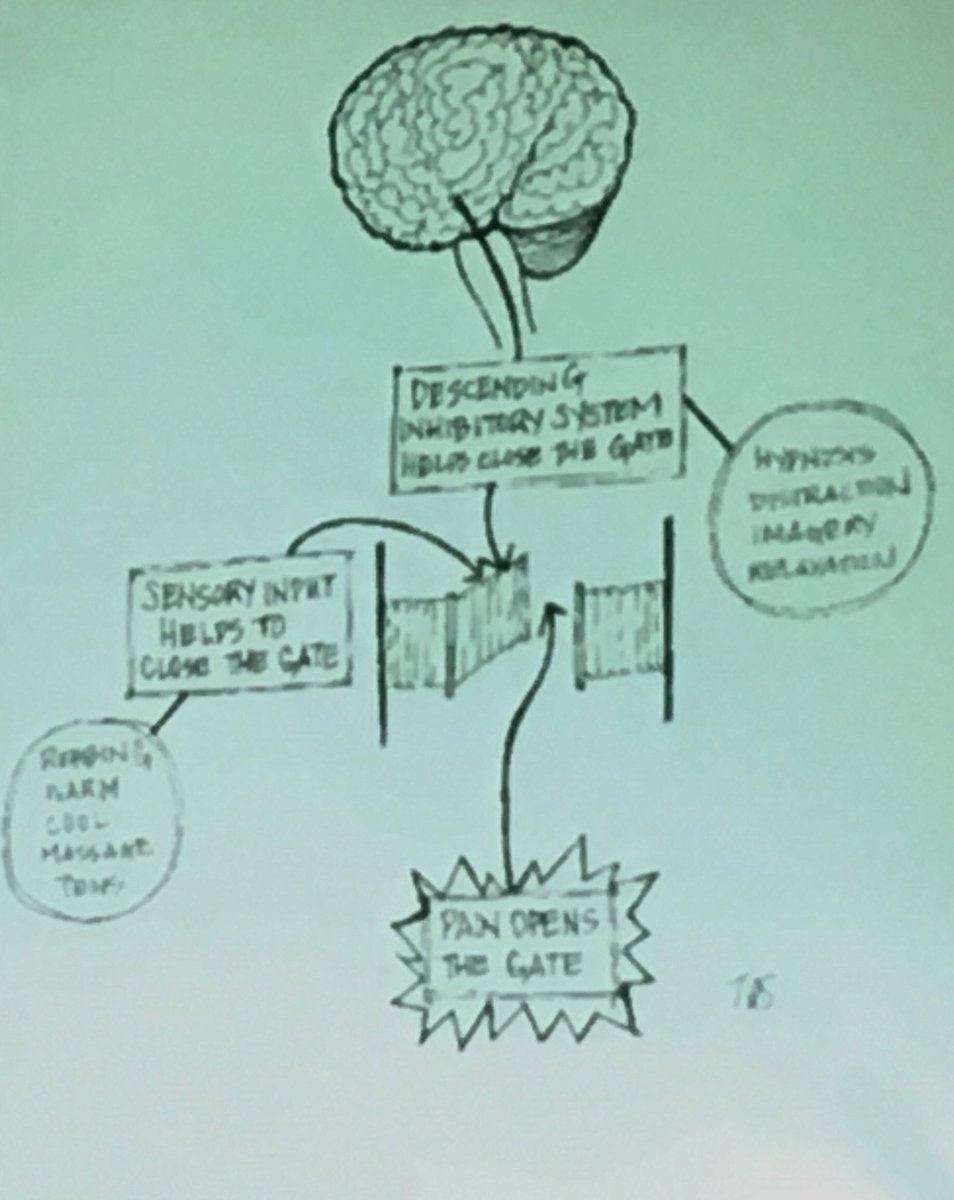 DESCENDING
INHIBITORY SYSTEM
HELPS CLOSE THE GATE
HYPNOSIS
DISTRACTION
IMAGERY
RELAXATION
SENSORY INPUT
HELPS TO
CLOSE THE GATE
RUBBING
WARM
COOL
MASSAGE
TENS
PAIN OPENS
THE GATE